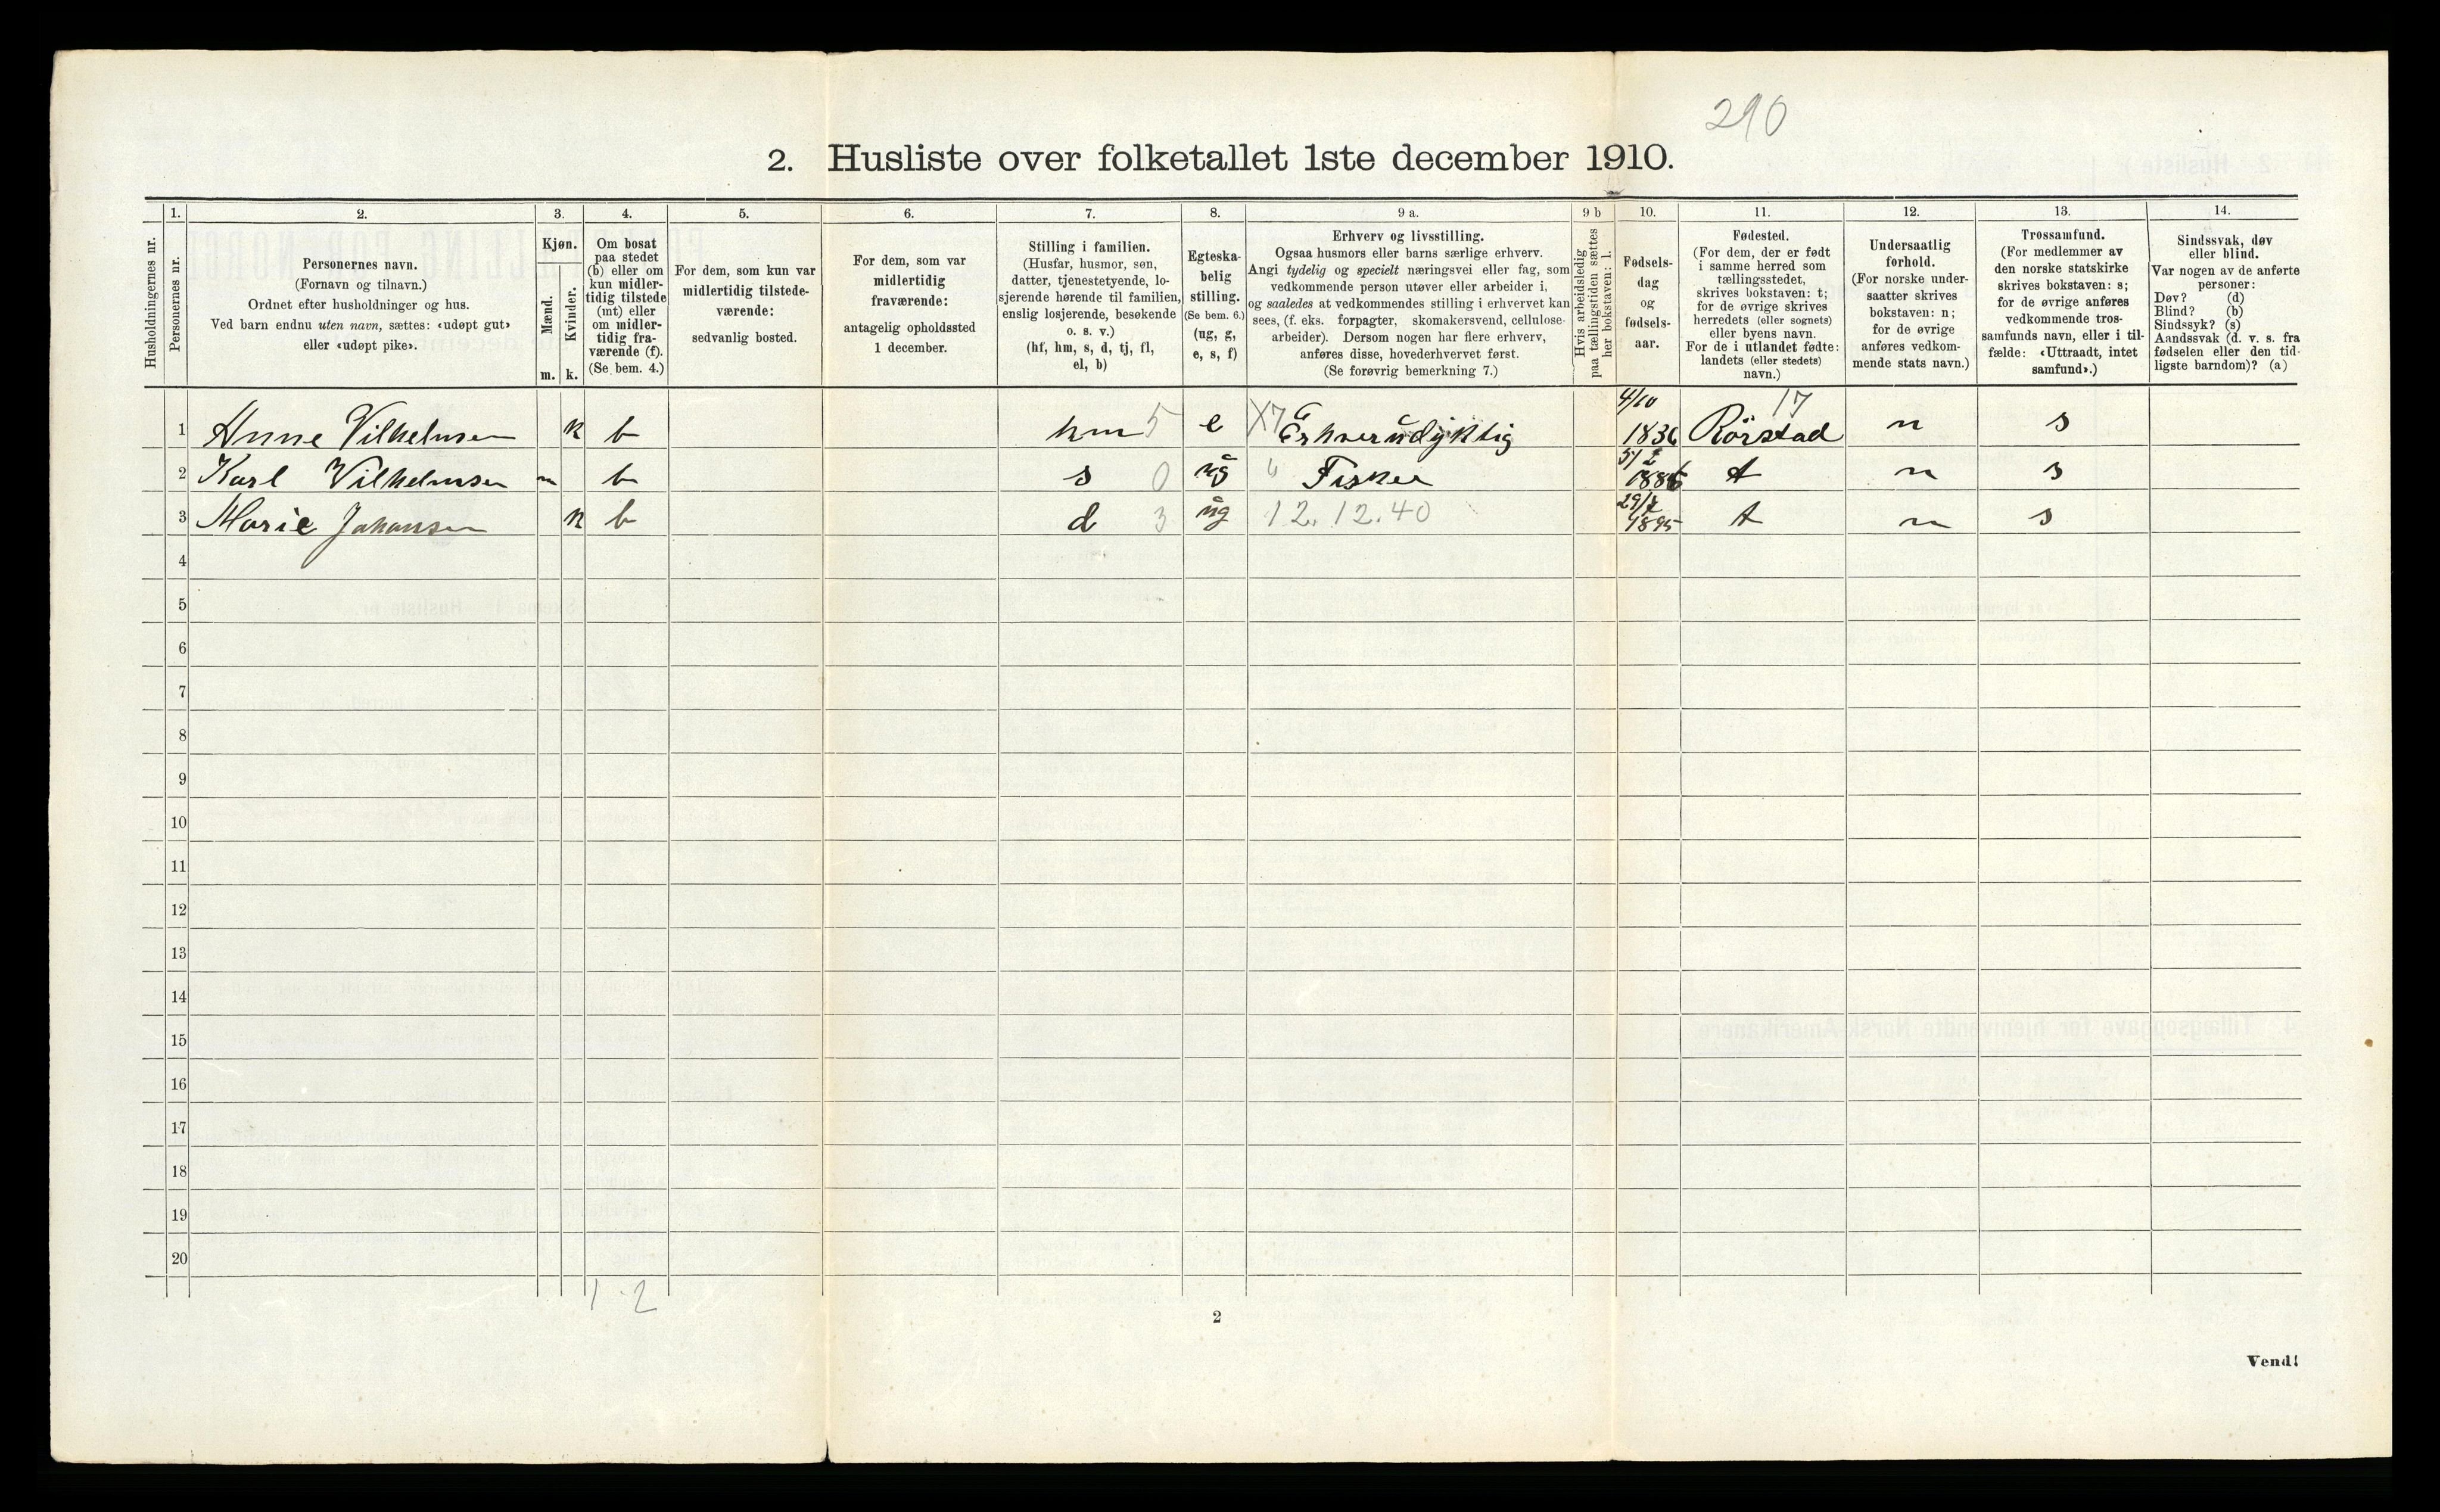 290
2. Husliste over folketallet 1ste december 1910.
Husholdningernes nr.
1.
Personernes nr.
2.
Personernes navn.
(Fornavn og tilnavn.)
Ordnet efter husholdninger og hus.
Ved barn endnu uten navn, sættes: «udøpt gut»
eller «udøpt pike».
3.
Kjøn.
Mænd.
Kvinder.
m. k.
4.
Om bosat
paa stedet
(b) eller om
kun midler-
tidig tilstede
(mt) eller
om midler-
tidig fra-
værende (f).
(Se bem. 4.)
5.
For dem, som kun var
midlertidig tilstede-
værende:
sedvanlig bosted.
6.
For dem, som var
midlertidig
fraværende:
antagelig opholdssted
1 december.
7.
Stilling i familien.
(Husfar, husmor, søn,
datter, tjenestetyende, lo-
sjerende hørende til familien,
enslig losjerende, besøkende
o. s. v.)
(hf, hm, s, d, tj, fl,
el, b)
8.
Egteska-
belig
stilling.
(Se bem. 6.)
(ug, g,
e, s, f)
9 a.
Erhverv og livsstilling.
Ogsaa husmors eller barns særlige erhverv.
Angi tydelig og specielt næringsvei eller fag, som
vedkommende person utøver eller arbeider i,
og saaledes at vedkommendes stilling i erhvervet kan
sees, (f. eks. forpagter, skomakersvend, cellulose-
arbeider). Dersom nogen har flere erhverv,
anføres disse, hovederhvervet først.
(Se forøvrig bemerkning 7.)
9 b
Hvis arbeidsledig
paa tællingstiden sættes
her bokstaven: l.
10.
Fødsels-
dag
og
fødsels-
aar.
11.
Fødested.
(For dem, der er født
i samme herred som
tællingsstedet,
skrives bokstaven: t;
for de øvrige skrives
herredets (eller sognets)
eller byens navn.
For de i utlandet fødte:
landets (eller stedets)
navn.)
12.
Undersaatlig
forhold.
(For norske under-
saatter skrives
bokstaven: n;
for de øvrige
anføres vedkom-
mende stats navn.)
13.
Trossamfund.
(For medlemmer av
den norske statskirke
skrives bokstaven: s;
for de øvrige anføres
vedkommende tros-
samfunds navn, eller i til-
fælde: «Uttraadt, intet
samfund».)
14.
Sindssvak, døv
eller blind.
Var nogen av de anførte
personer:
Døv? (d)
Blind? (b)
Sindssyk? (s)
Aandssvak (d. v. s. fra
fødselen eller den tid-
ligste barndom)? (a)
1 Anne Vilhelmsen k b hm 5 e X7 Erhverudyktig 4/10 1836 17 Rörstad n s
2 Karl Vilhelmsen m b s 0 ug " Fisker t n s
3 Marie Johansen k b d 3 ug 12.12.40 1895 t n s
4
5
6
7
8
9
10
11
12
13
14
15
16
17
18
19
20
1 2
2
Vend!